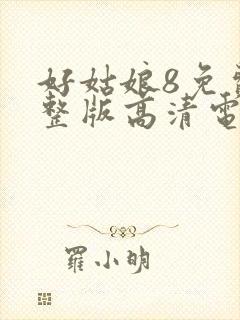 好姑娘8免
整版高清電
羅小明